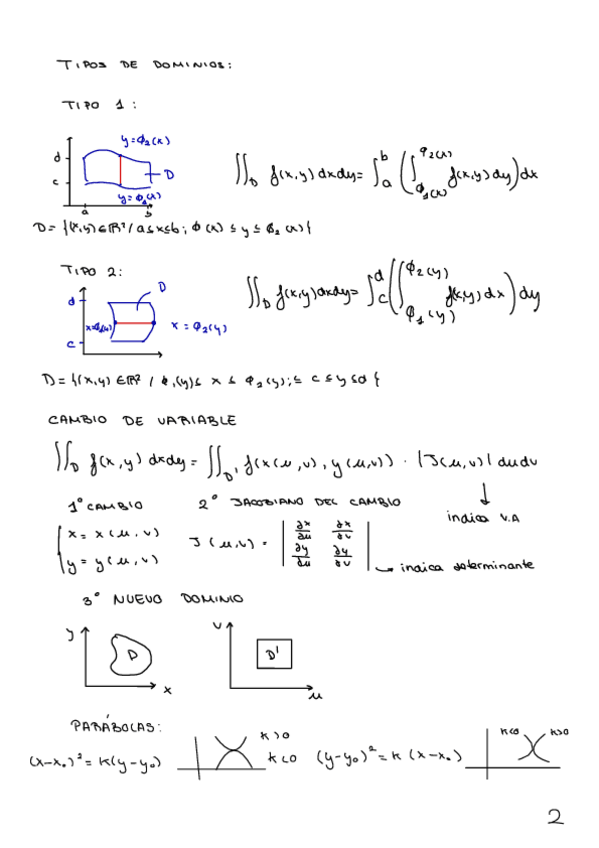 TIPOS DE DOMINIOS:
TIPO 1:
y=ϕ₂(x)
d
c
D
y=ϕ₁(x)
a b
∬_D f(x,y) dxdy = ∫_a^b (∫_{ϕ₁(x)}^{φ₂(x)} f(x,y) dy) dx
D = {(x,y)∈ℝ² / a≤x≤b ; ϕ(x) ≤ y ≤ ϕ₂(x)}
TIPO 2:
d
D
x=ϕ₁(y)
x = φ₂(y)
c
∬_D f(x,y) dxdy = ∫_c^d (∫_{φ₁(y)}^{ϕ₂(y)} f(x,y) dx) dy
D = {(x,y) ∈ℝ² / ϕ₁(y) ≤ x ≤ φ₂(y) ; ≤ c ≤ y ≤ d}
CAMBIO DE VARIABLE
∬_D f(x,y) dxdy = ∬_D' f(x(μ,v), y(μ,v)) · |J(μ,v)| dudv
↓
indica V.A
1º CAMBIO
x = x(μ,v)
y = y(μ,v)
2º JACOBIANO DEL CAMBIO
J(μ,v) = | ∂x/∂u ∂x/∂v |
| ∂y/∂u ∂y/∂v |
→ indica determinante
3º NUEVO DOMINIO
y D x
v D' μ
PARÁBOLAS:
(x-x₀)² = K(y-y₀)
K>0
K<0
(y-y₀)² = K (x-x₀)
K<0 K>0
2